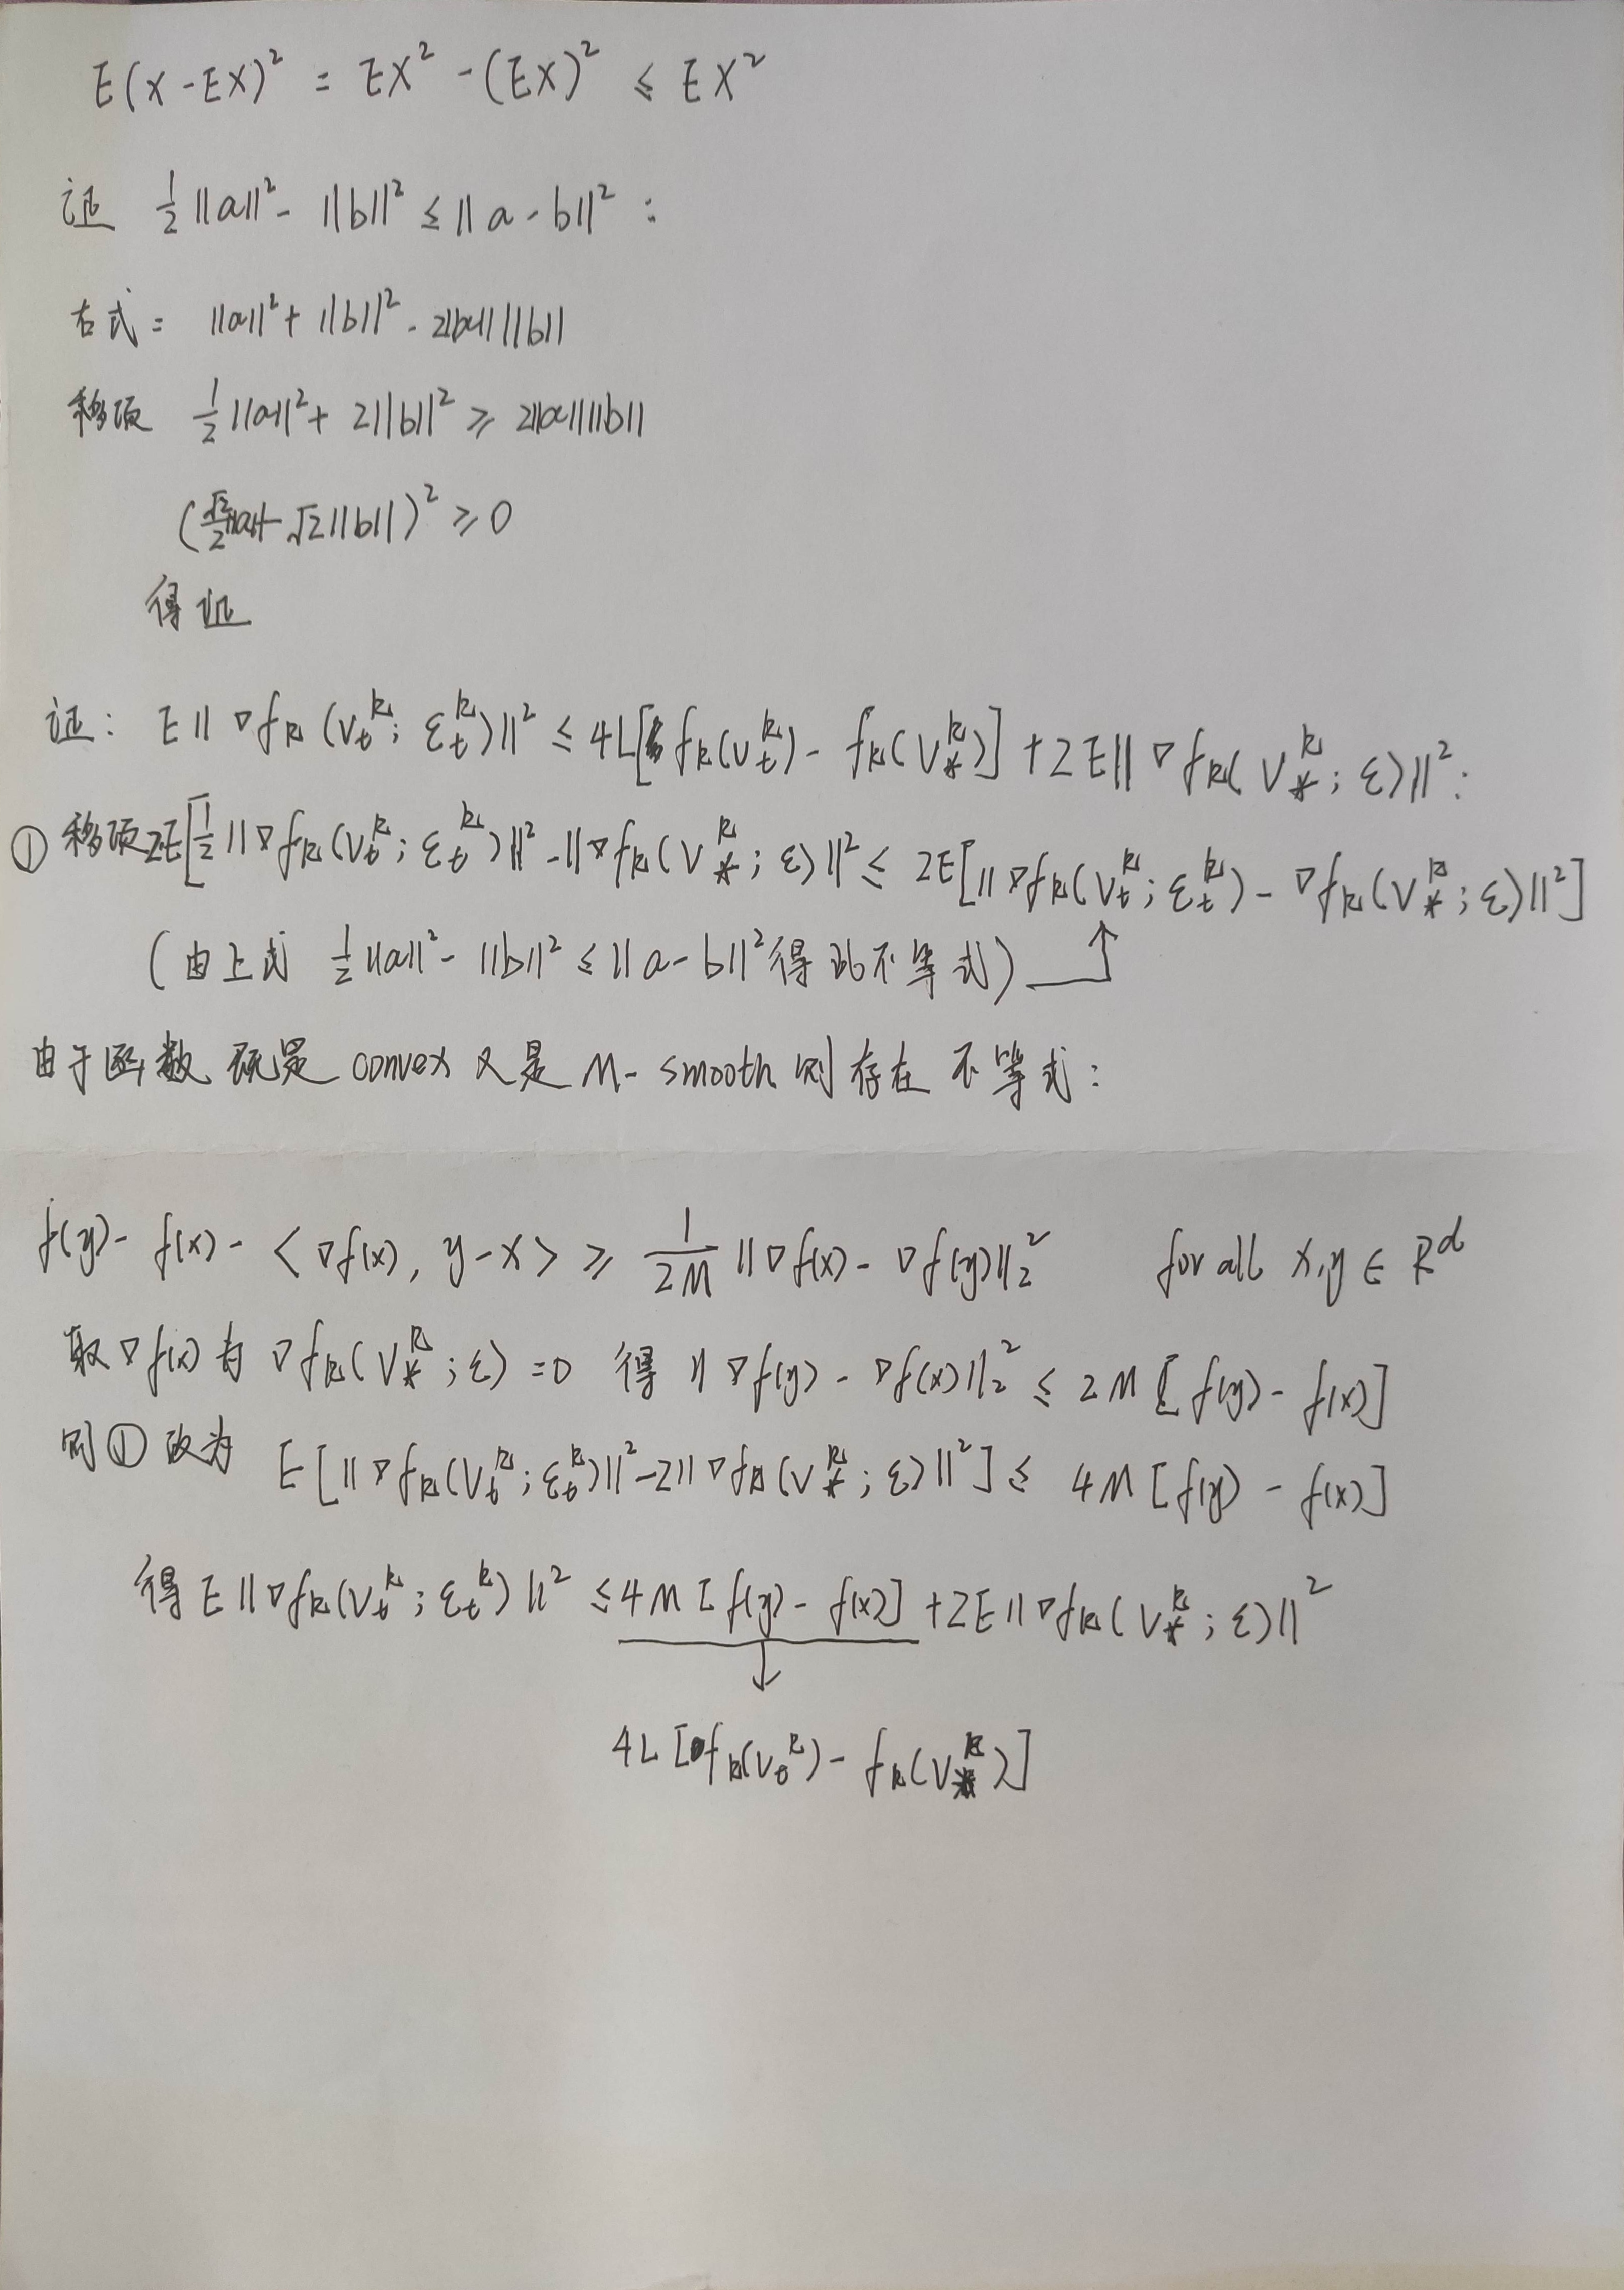 E(X-EX)² = EX² - (EX)² ≤ EX²
证 ½||a||² - ||b||² ≤ ||a-b||² :
右式 = ||a||² + ||b||² - 2||a||||b||
移项 ½||a||² + 2||b||² ≥ 2||a||||b||
(√2/2||a|| - √2||b||)² ≥ 0
得证
证: E||∇f_k(v_t^k; ξ_t^k)||² ≤ 4L[f_k(v_t^k) - f_k(v_*^k)] + 2E||∇f_k(v_*^k; ξ)||² :
① 移项 2E[½||∇f_k(v_t^k; ξ_t^k)||² - ||∇f_k(v_*^k; ξ)||² ≤ 2E[||∇f_k(v_t^k; ξ_t^k) - ∇f_k(v_*^k; ξ)||²]
(由上式 ½||a||² - ||b||² ≤ ||a-b||² 得此不等式) ↑
由于函数既是 convex 又是 M-smooth 则存在不等式:
f(y) - f(x) - <∇f(x), y-x> ≥ 1/2M ||∇f(x) - ∇f(y)||₂² for all x,y ∈ R^d
取∇f(x)为 ∇f_k(v_*^k; ξ) = 0 得 ||∇f(y) - ∇f(x)||₂² ≤ 2M[f(y) - f(x)]
则①改为 E[||∇f_k(v_t^k; ξ_t^k)||² - 2||∇f_k(v_*^k; ξ)||²] ≤ 4M[f(y) - f(x)]
得 E||∇f_k(v_t^k; ξ_t^k)||² ≤ 4M[f(y) - f(x)] + 2E||∇f_k(v_*^k; ξ)||²
↓
4L[f_k(v_t^k) - f_k(v_*^k)]